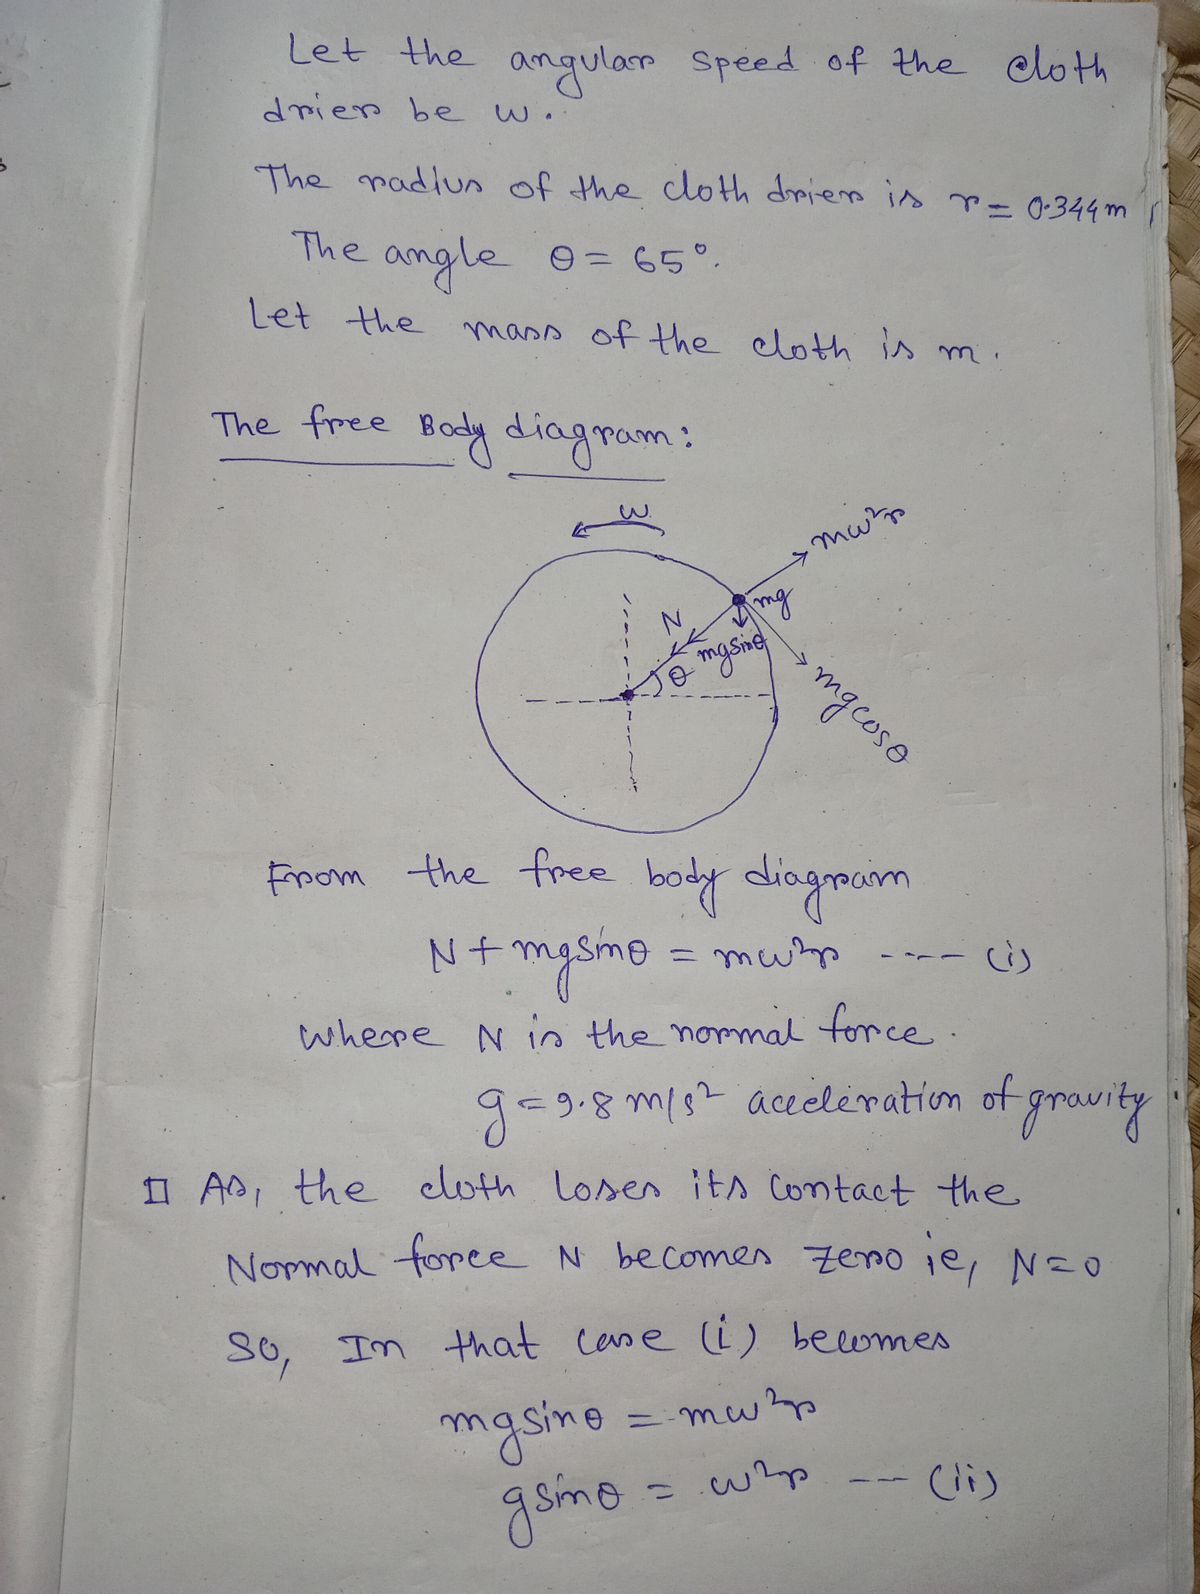 Let the angular speed of the cloth
drier be ω.
The radius of the cloth drier is r = 0.344m,
The angle θ = 65°.
Let the mass of the cloth is m.
The free Body diagram:
ω
mω²r
mg
N
mgsinθ
θ
mgcosθ
From the free body diagram
N + mgsinθ = mω²r ---- (i)
where N is the normal force.
g = 9.8 m/s² acceleration of gravity
□ As, the cloth loses its contact the
Normal force N becomes zero ie, N = 0
So, In that case (i) becomes
mgsinθ = mω²r
gsinθ = ω²r --- (ii)